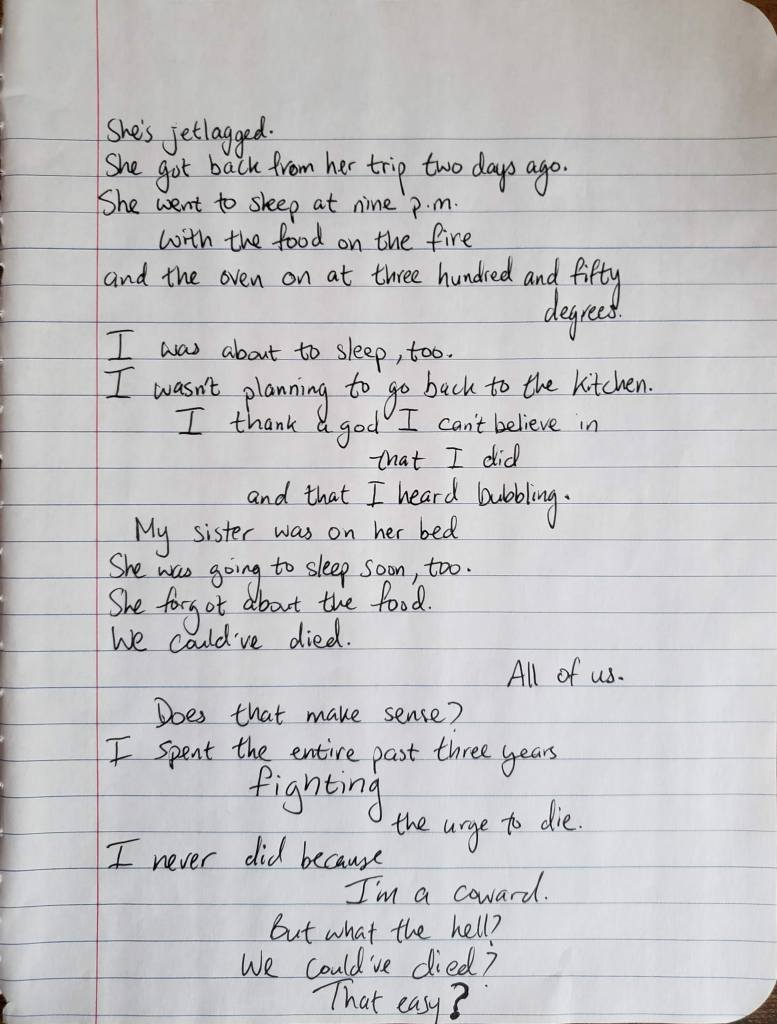 She's jetlagged.
She got back from her trip two days ago.
She went to sleep at nine p.m.
with the food on the fire
and the oven on at three hundred and fifty
degrees.
I was about to sleep, too.
I wasn't planning to go back to the kitchen.
I thank a god I can't believe in
that I did
and that I heard bubbling.
My sister was on her bed
She was going to sleep soon, too.
She forgot about the food.
We could've died.
All of us.
Does that make sense?
I spent the entire past three years
fighting
the urge to die.
I never did because
I'm a coward.
But what the hell?
We could've died?
That easy?